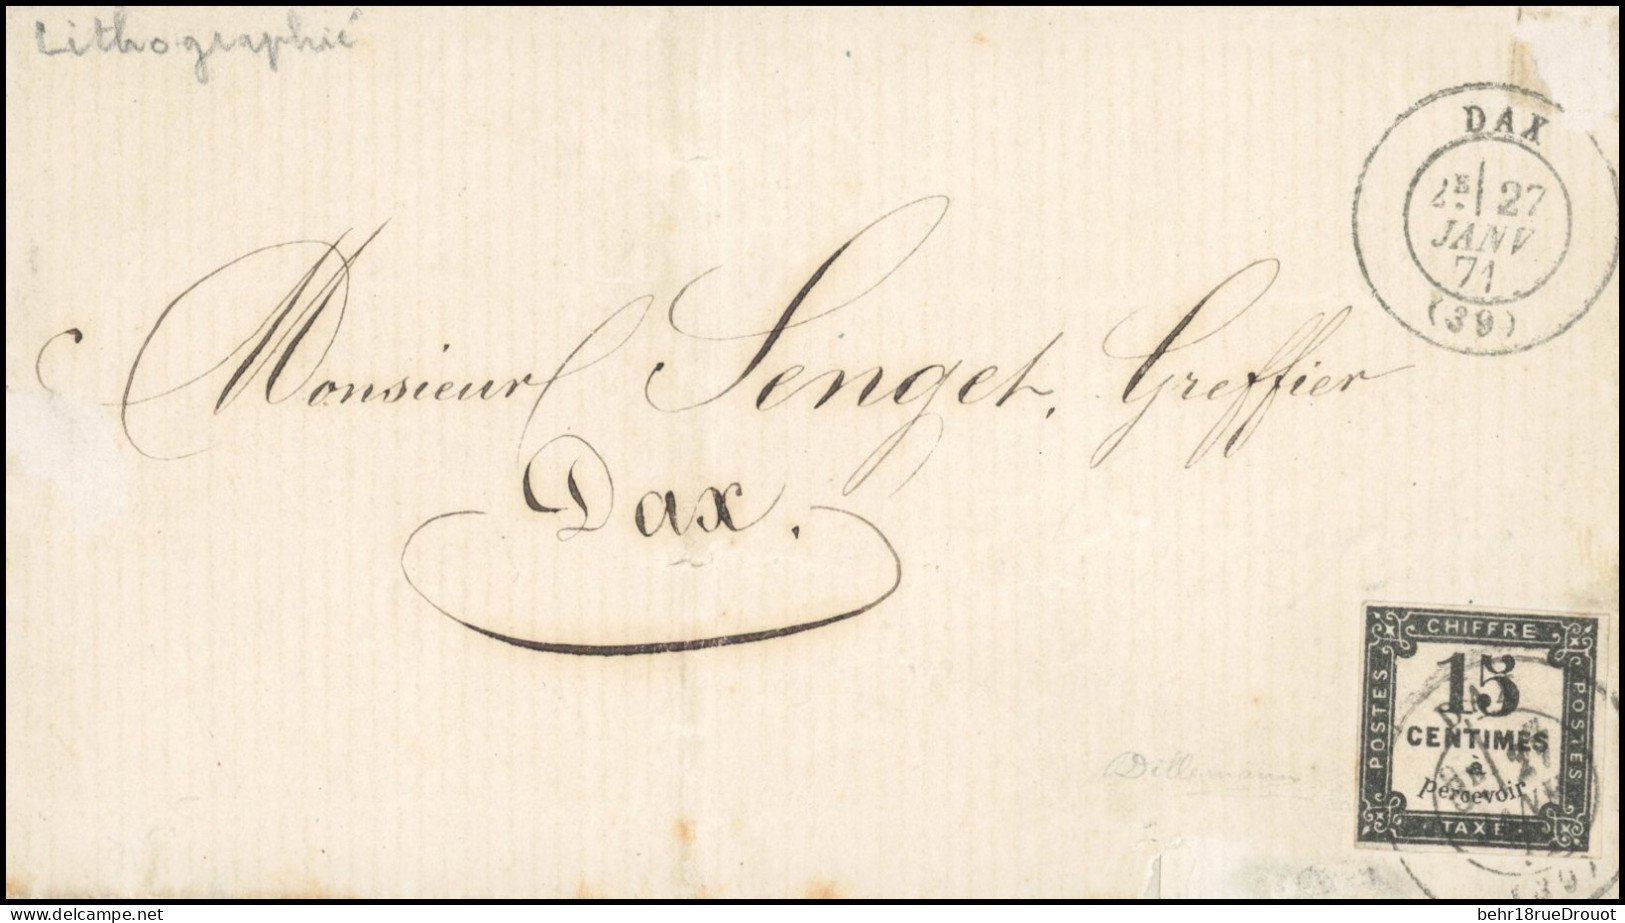 Lithographié
DAX
2E 27
JANV
71
(39)
Monsieur Senget, Greffier
Dax.
CHIFFRE
POSTES
15
CENTIMES
à
percevoir
POSTES
TAXE
Dillemann
27
(39)
delcampe.net
behr18rueDrouot